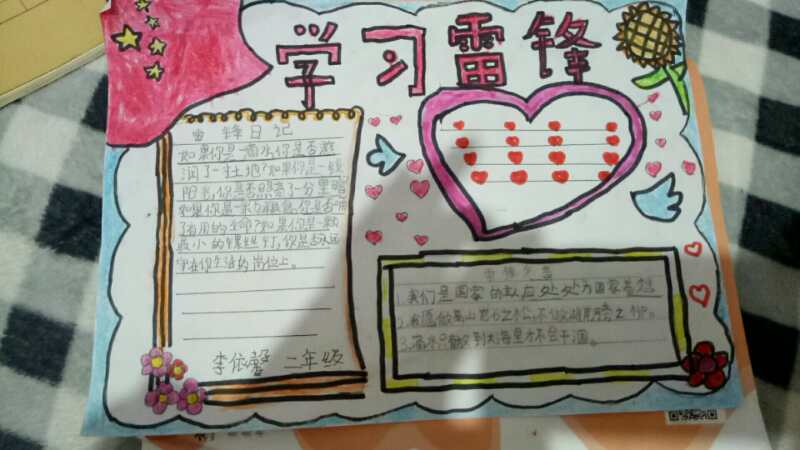 学习雷锋
雷锋日记
如果你是一滴水,你是否滋
润了一寸土地?如果你是一线
阳光,你是否照亮了一分黑暗
如果你是一颗粮食,你是否哺
了有用的生命?如果你是一颗
最小的螺丝钉,你是否永远
守在你生活的岗位上。
李依馨 二年级
雷锋名言
1.我们是国家的主人,应处处为国家着想
2.我愿做高山岩石之松,不做湖岸河旁之柳。
3.滴水只有放到大海里才不会干涸。